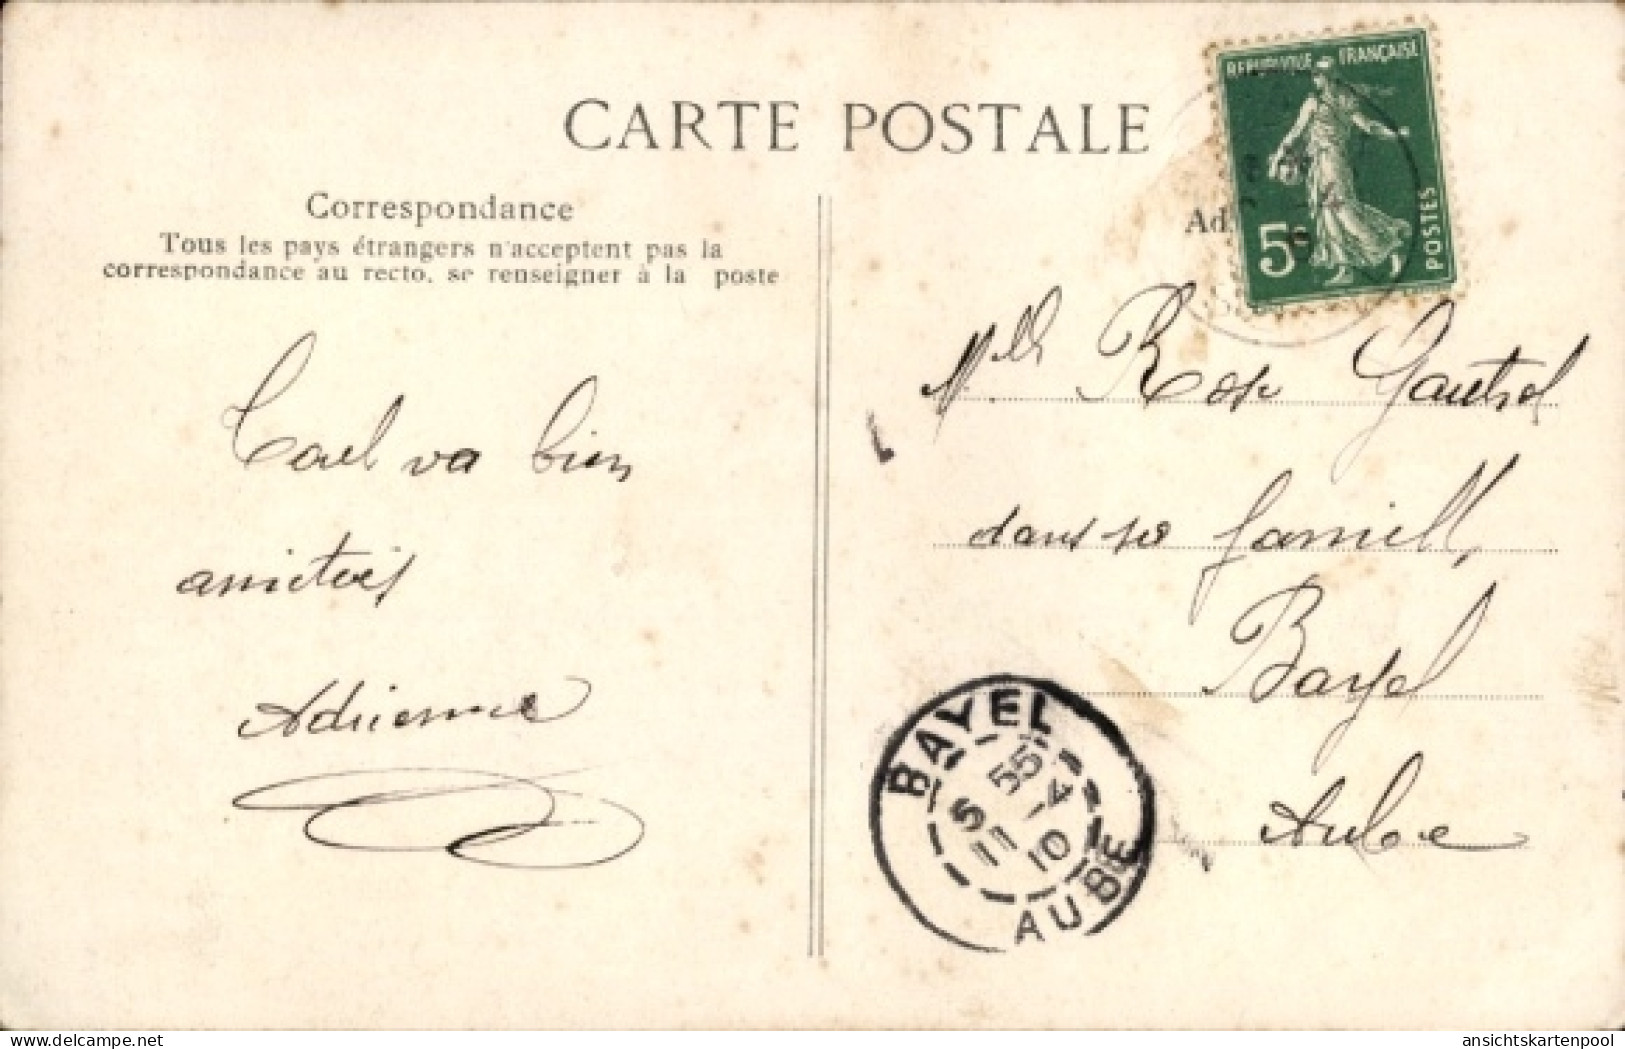 CARTE POSTALE
Correspondance
Tous les pays étrangers n'acceptent pas la
correspondance au recto, se renseigner à la poste
va bien
amitiés
Adrienne
REPUBLIQUE FRANÇAISE
POSTES
5c
Ad
Mlle Rose
dans sa famille
Bayel
Aube
BAYEL
5 55
11 -4
10
AUBE
delcampe.net
ansichtskartenpool